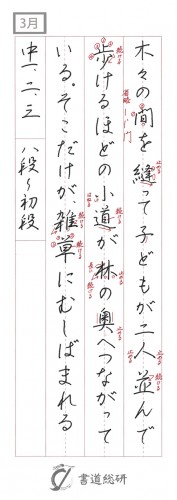 3月
木々の間を縫って子どもが二人並んで
歩けるほどの小道が林の奥へつながって
いる。そこだけが、雑草にむしばまれる
中一、二、三
八段～初段
書道総研